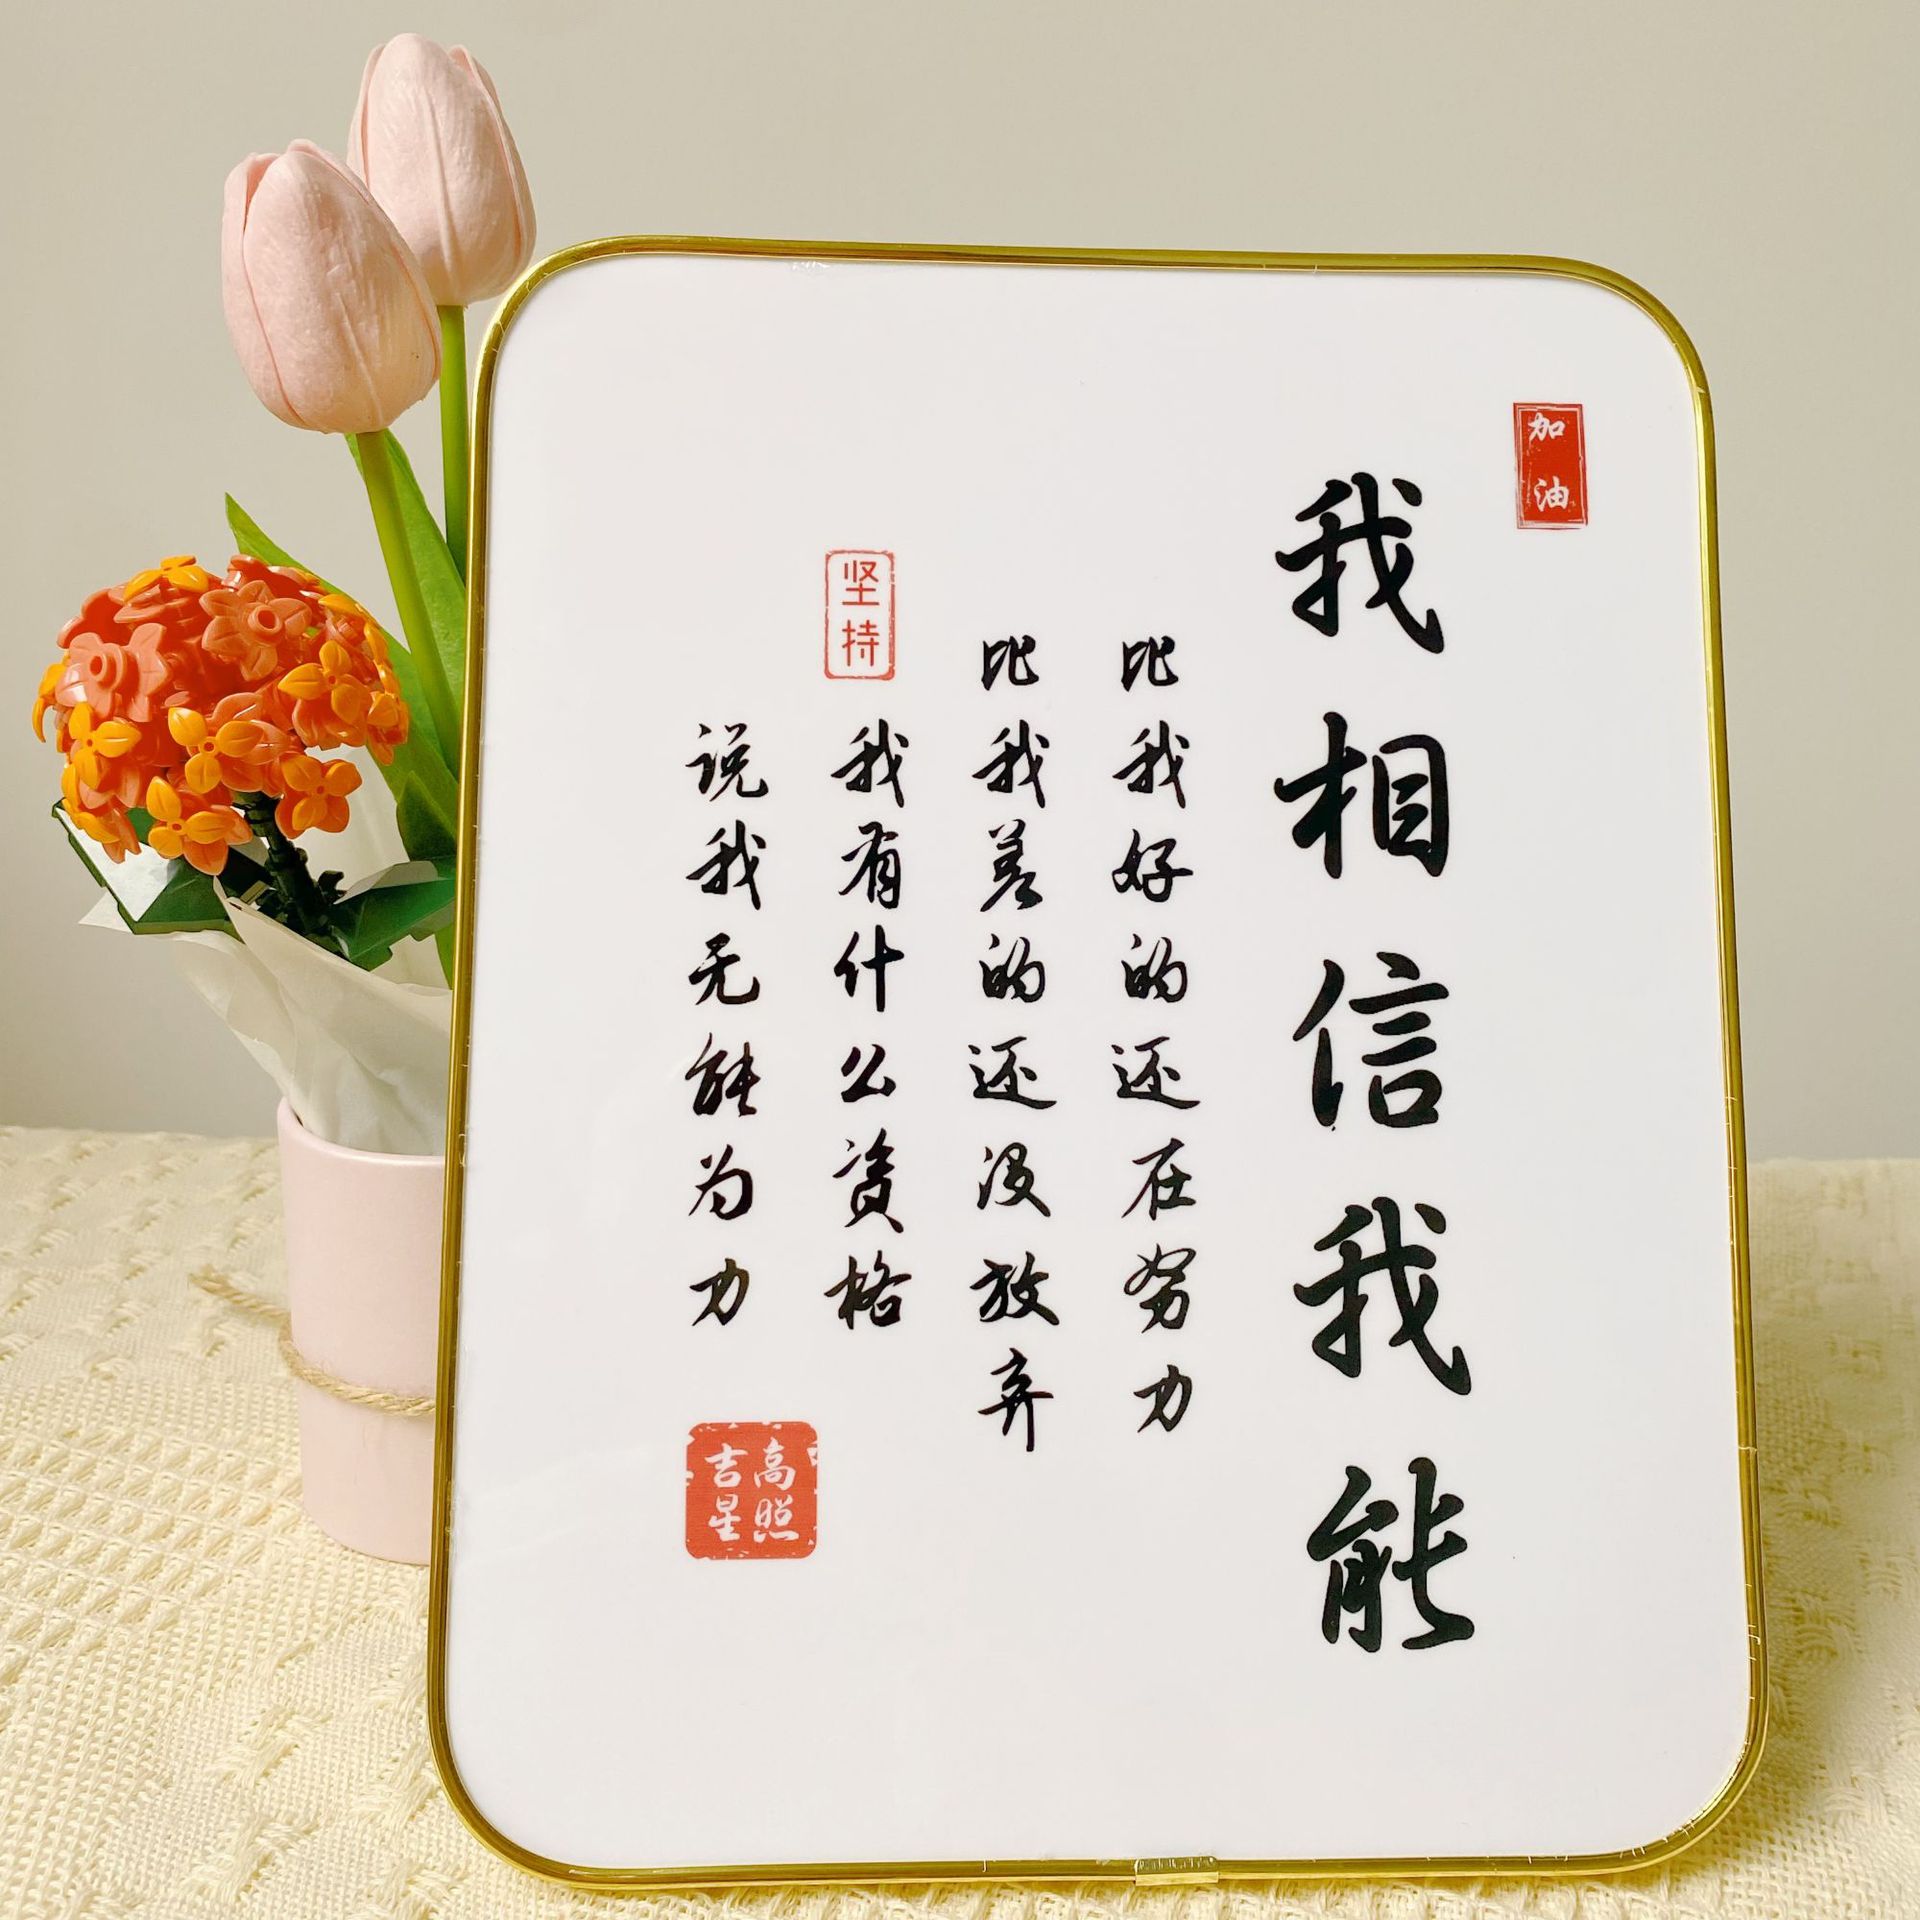 加油
我相信我能
比我好的还在努力
比我差的还没放弃
坚持
我有什么资格
说我无能为力
吉星高照